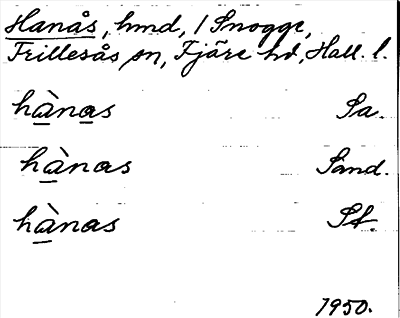 Hanås, hmd, / Snogge,
Frillesås sn, Fjäre hd, Hall. l.
hànas Sa.
hànas Sand.
hànas St.
1950.